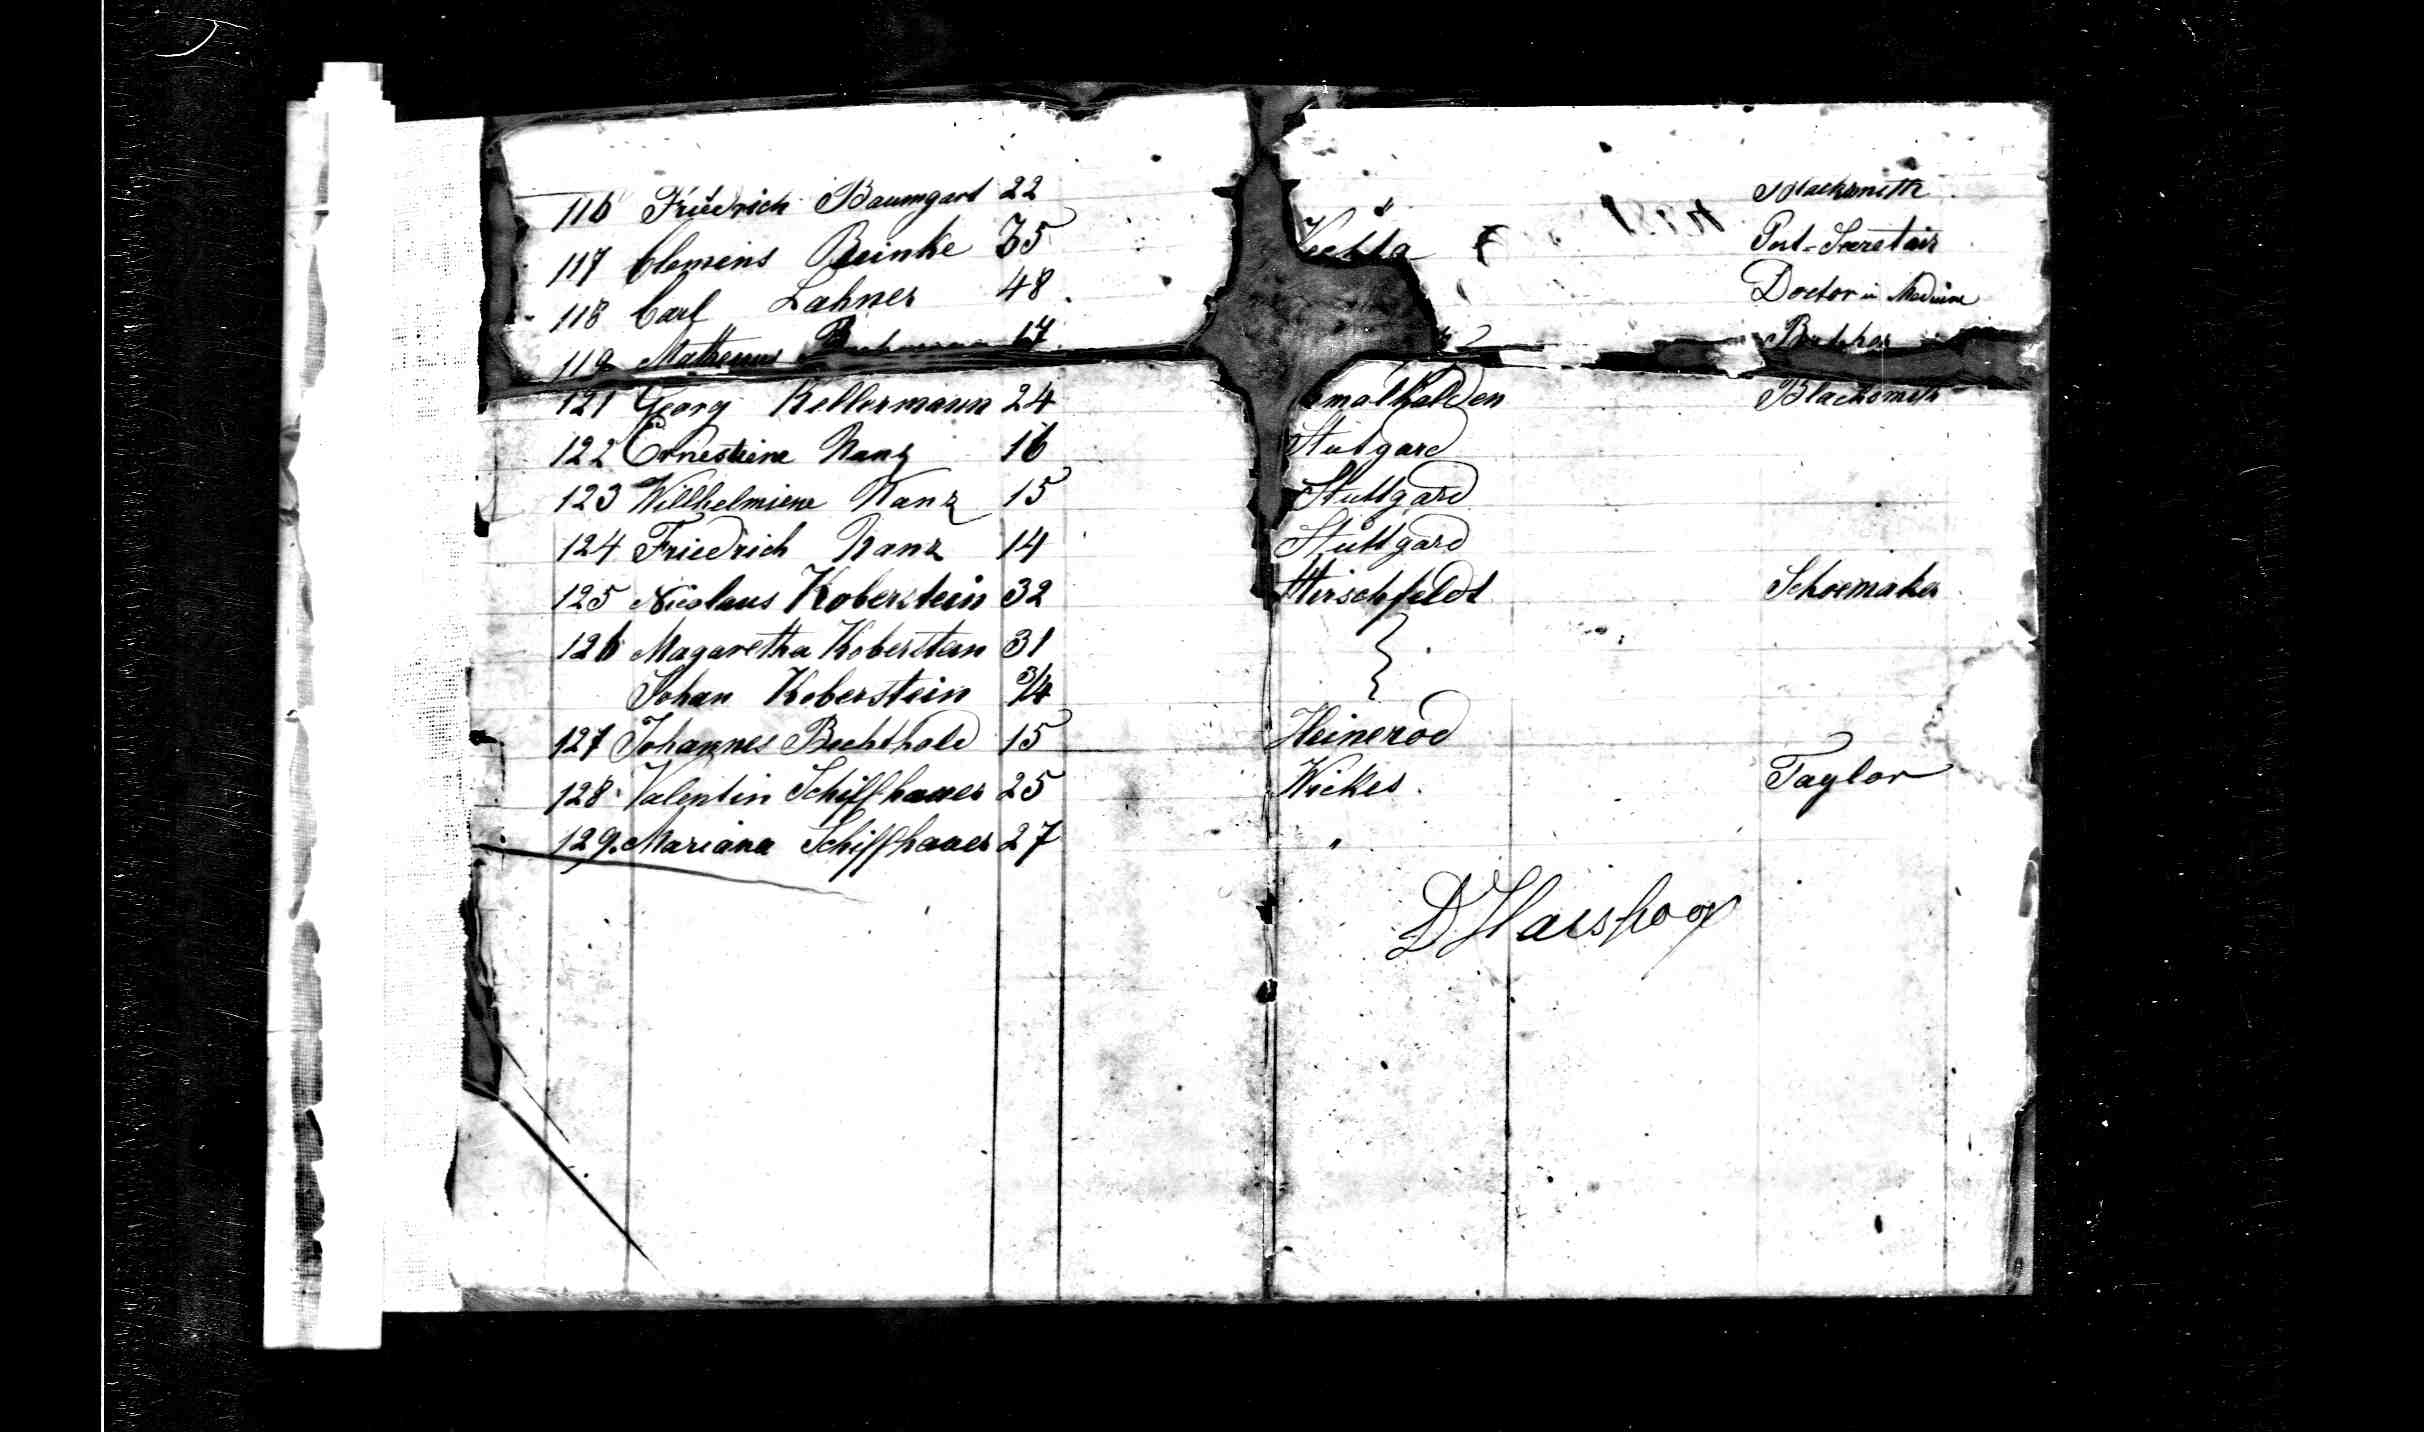 116 Friedrich Baumgart 22 " Blacksmith
117 Clemens Reinke 35 Vechta Post-Secretair
118 Carl Lahner 48 Doctor in Medicine
119 17
121 Georg Kellermann 24 Smalkalden Blacksmith
122 Ernestiene Nanz 16 Stutgard
123 Willhelmiene Nanz 15 Stuttgard
124 Friedrich Nanz 14 Stuttgard
125 Nicolaus Koberstein 32 Hirschfeldt Schoemaker
126 Magaretha Koberstein 31
Johan Koberstein 3/4
127 Johannes Bechthold 15 Heinerod
128 Valentin Schiffhauer 25 Wickes Taylor
129. Mariana Schiffhauer 27 "
D Haeshoop